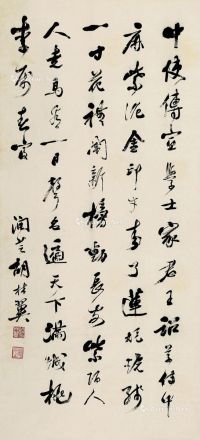 中使傳宣學士家君王詔草侍中
麻紫泥金印事了蓮炬殘
一寸花禮闈新榜動長安紫陌人
人走馬看一日聲名遍天下滿城桃
李屬春官
潤芝胡林翼